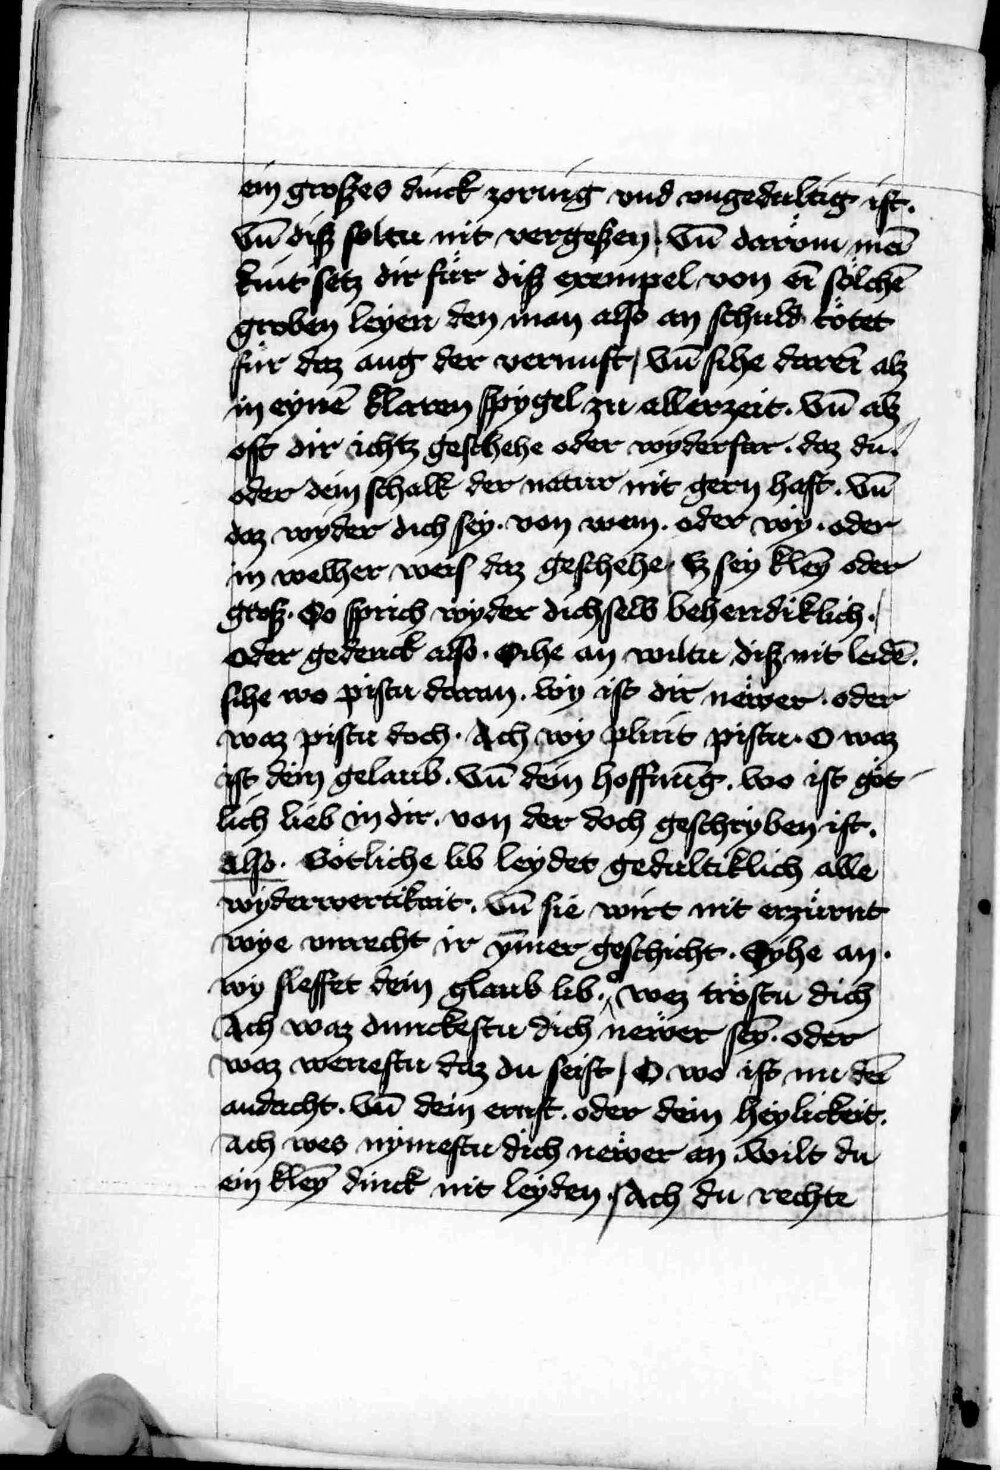 ein großes dinck zornig vnd vngedultig ist.
Vn̄ diß soltu nit vergeßen. Vn̄ darvm mei̅
kint setz dir für diß exempel von ei̅ sölche̅
groben leyen den man also an schuld tötet
für daz aug der vernuft / Vn̄ sihe darei̅ alz
in eyne̅ klaren spygel zu allerzeit. Vn̄ alz
oft dir ichtz geschehe oder wyderfar. daz du.
oder dein schalk der natur nit gern hast. Vn̄
daz wyder dich sey. von wem. oder wy. oder
in welher weis daz geschehe / Es sey kley̅ oder
groß. So sprich wyder dichselb behendiklich.
Oder gedenck also. Sihe an wiltu diß nit leide̅.
sihe wo pistu daran. wy ist dir newer. oder
waz pistu doch. Ach wy plint pistu. O waz
ist dein gelaub. Vn̄ dein hoffnu̅g. wo ist göt-
lich lieb in dir. von der doch geschryben ist.
Also. Götliche lib leydet gedultiklich alle
wyderwertikait. Vn̄ sie wirt nit erzürnt
wye vnrecht ir y̅mer geschicht. Syhe an.
wy sleffet dein glaub lib. wez tröstu dich
Ach waz dunckestu dich newer sey̅. oder
waz wenestu daz du seist / O wo ist nu dei̅
andacht. Vn̄ dein ernst. oder dein heylickeit.
Ach wes nymestu dich newer an. Wilt du
ein kley̅ dinck nit leyden. / Ach du rechte